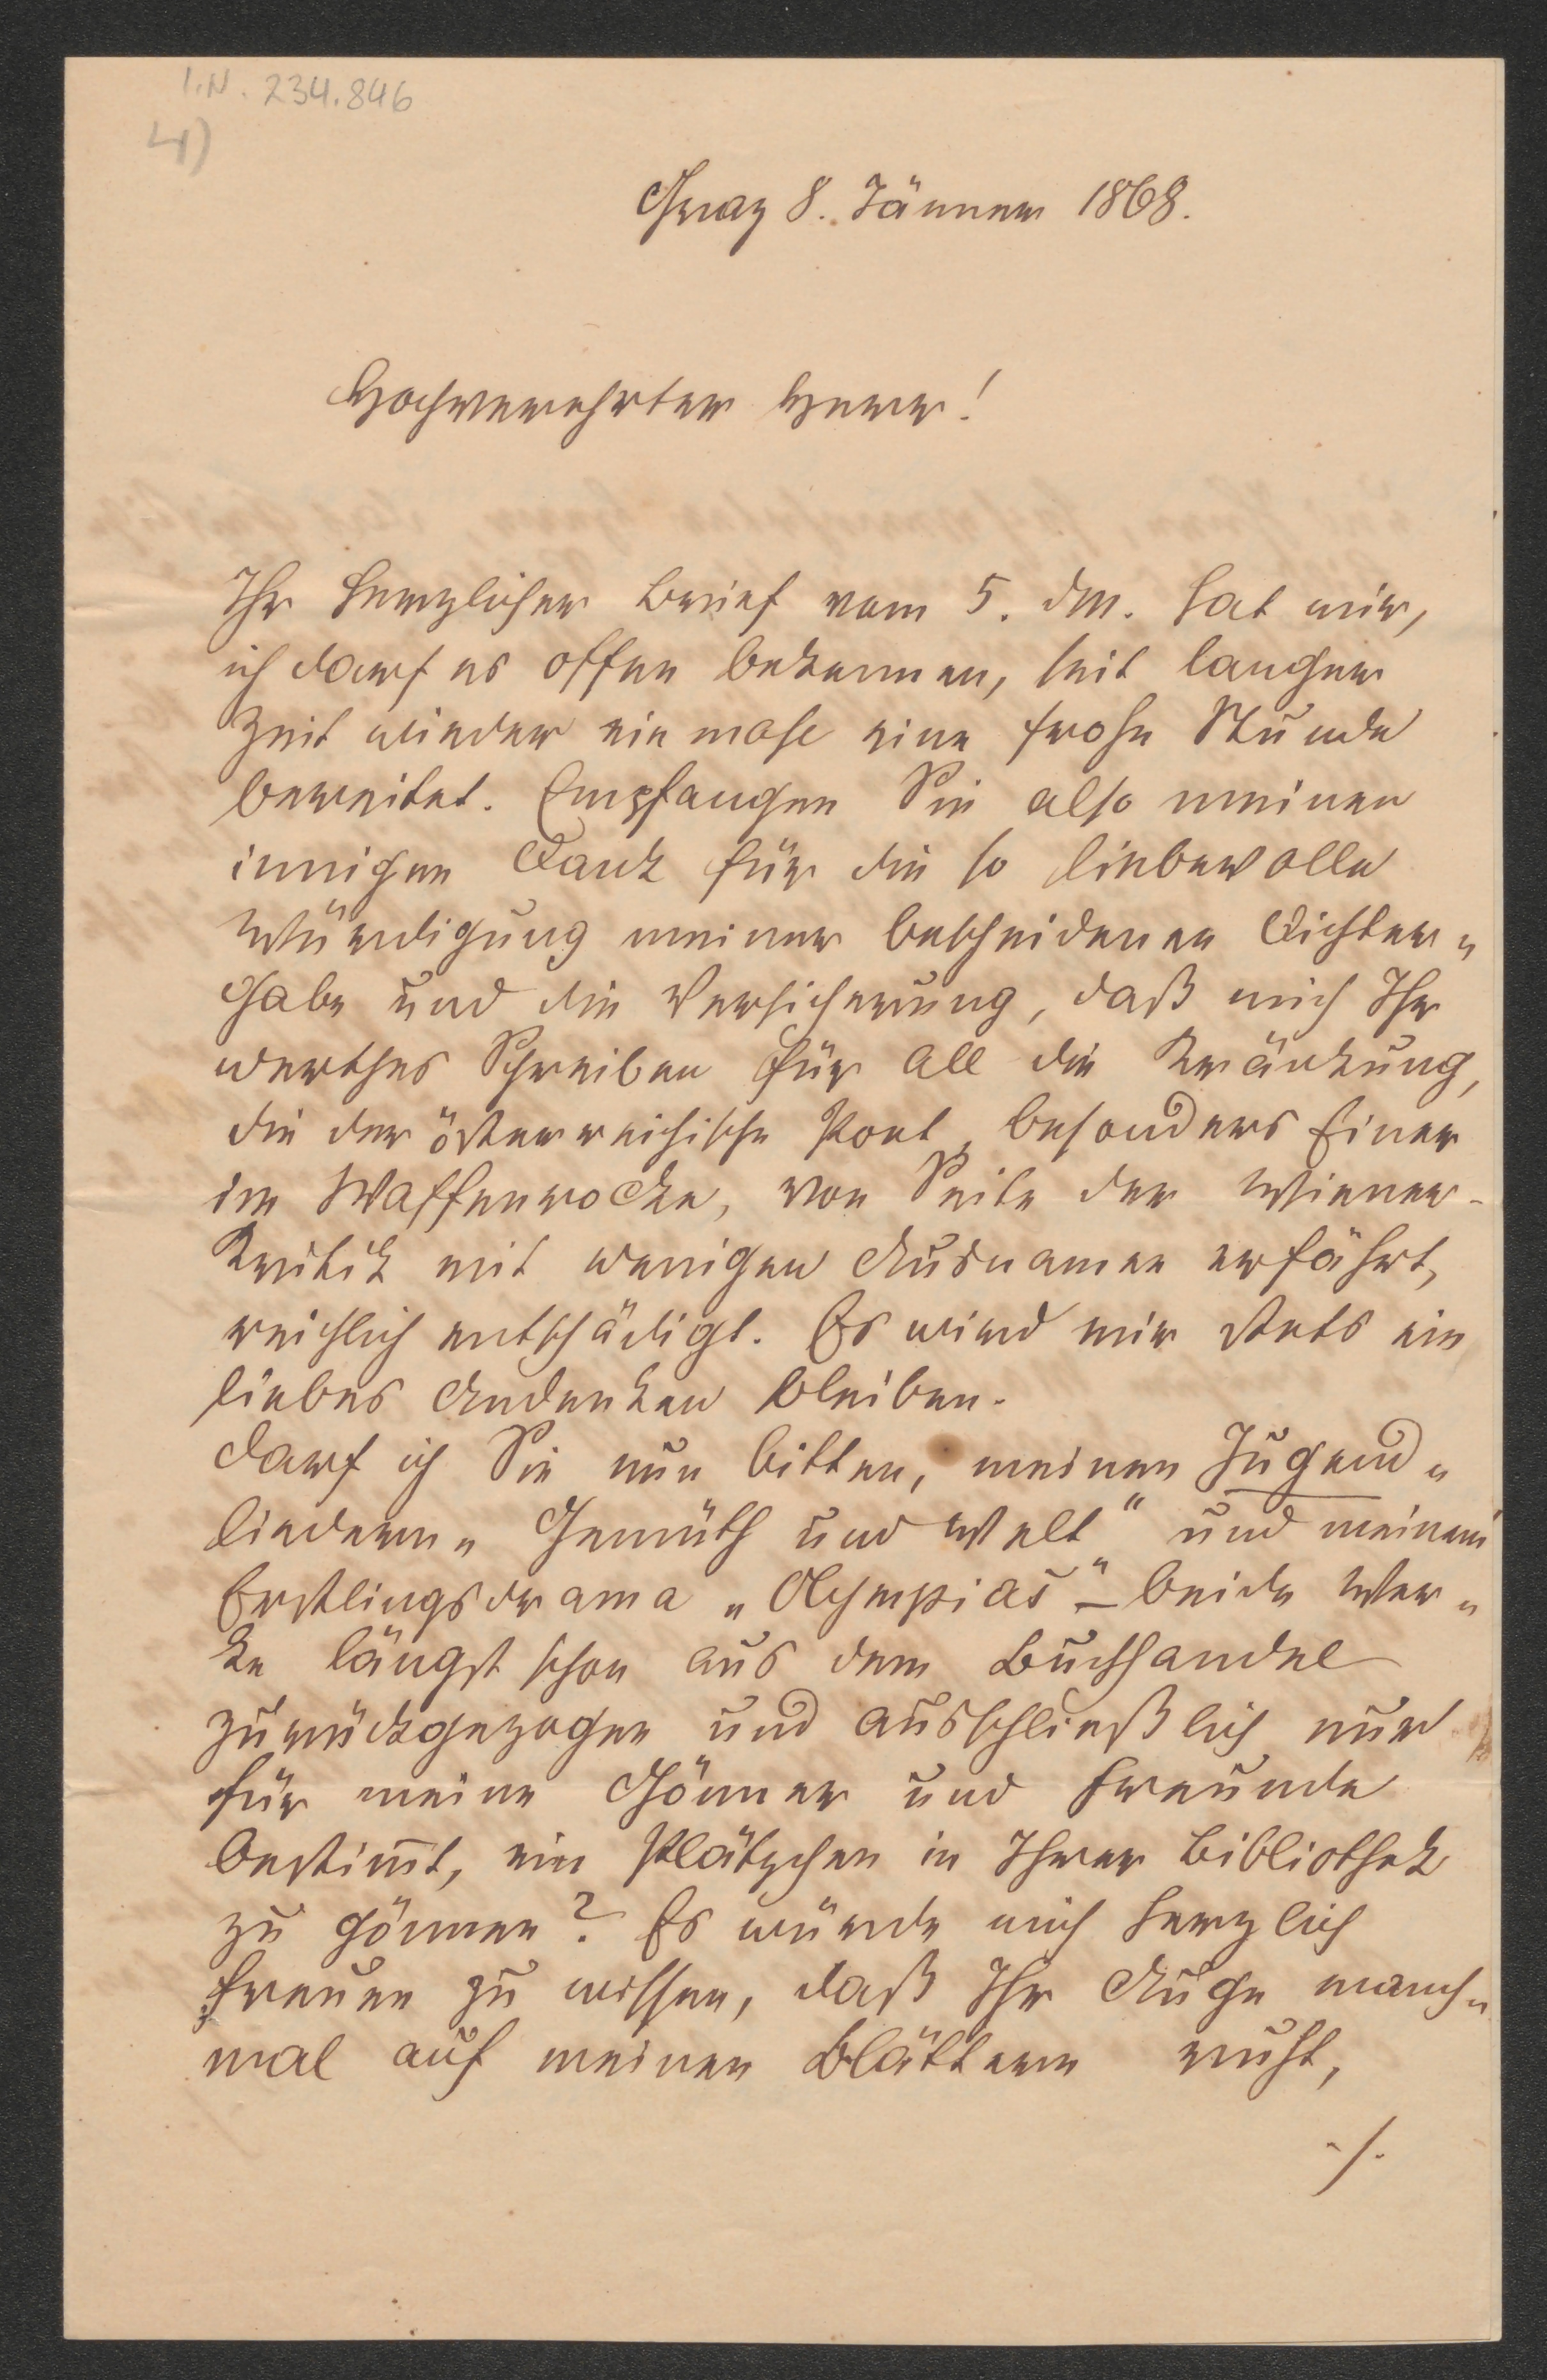 I.N. 234.846
4)
Graz 8. Jänner 1868.
Hochverehrter Herr!
Ihr herzlicher Brief vom 5. dM. hat mir,
ich darf es offen bekennen, seit langer
Zeit wieder ein mahl eine frohe Stunde
bereitet. Empfangen Sie also meinen
innigen Dank für die so liebevolle
Würdigung meiner bescheidenen Dichter„
gabe und die Versicherung, daß mich Ihr
werthes Schreiben für all die Kränkung,
die der österreichische Poet, besonders Einer
im Waffenrocke, von Seite der Wiener-
Kritik mit wenigen Ausnamen erfährt,
reichlich entschädigt. Es wird mir stets ein
liebes Andenken bleiben.
Darf ich Sie nun bitten, meinen Jugend„
liedern „Gemüth und Welt“ und meinem
Erstlingsdrama „Olympias“ – beide Wer„
ke längst schon aus dem Buchhandel
zurückgezogen und ausschließlich nur
für meine Gönner und Freunde
bestim̅t, ein Plätzchen in Ihrer Bibliothek
zu gönnen? Es würde mich herzlich
freuen zu wissen, daß Ihr Auge manch„
mal auf meinen Blättern ruht,
./.